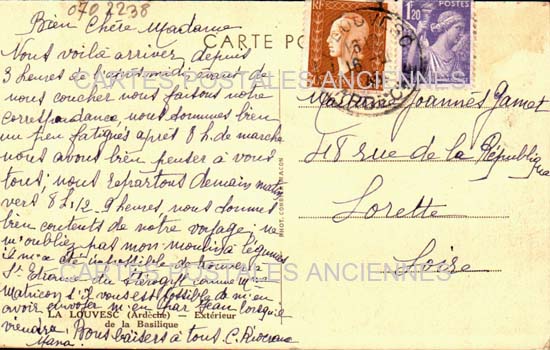 0702238
Bien Chère Madame
Nous voilà arriver, depuis
3 heures de l'après midi avant de
nous coucher nous faisons notre
correspondance, nous sommes bien
un peu fatigués après 8 h. de marche
nous avons bien penser à vous
tous; nous repartons demain matin
vers 8h1/2 9 heures, nous sommes
bien contents de notre voyage; ne
m'oubliez pas mon moulin à légumes
il m'a été impossible de
St Etienne comme
Matricon s'il vous est possible de m'en
avoir envoyer m'en par Jean lorsqu'il
viendra. Bons baisers à tous C.
CARTE POSTALE
RF
1f20
Madame Joannes Gamet
48 rue de la République
Lorette
Loire
CARTES POSTALES ANCIENNES
CARTES POSTALES ANCIENNES
LA LOUVESC (Ardèche) — Extérieur
de la Basilique